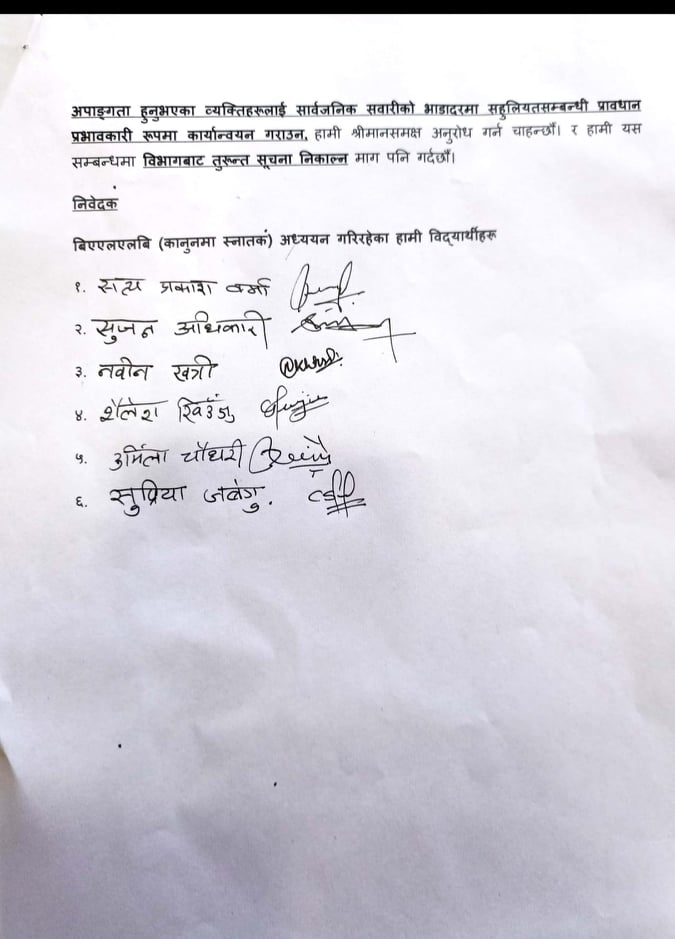 अपाङ्गता हुनुभएका व्यक्तिहरूलाई सार्वजनिक सवारीको भाडादरमा सहुलियतसम्बन्धी प्रावधान
प्रभावकारी रूपमा कार्यान्वयन गराउन, हामी श्रीमानसमक्ष अनुरोध गर्न चाहन्छौं। र हामी यस
सम्बन्धमा विभागबाट तुरून्त सूचना निकाल्न माग पनि गर्दछौं।
निवेदक
बिएएलएलबि (कानुनमा स्नातक) अध्ययन गरिरहेका हामी विद्यार्थीहरू
१. सत्य प्रकाश वर्मा
२. सुजन अधिकारी
३. नवीन खत्री
४. शैलेश
५. उर्मिला चौधरी
६. सुप्रिया जबेगु.